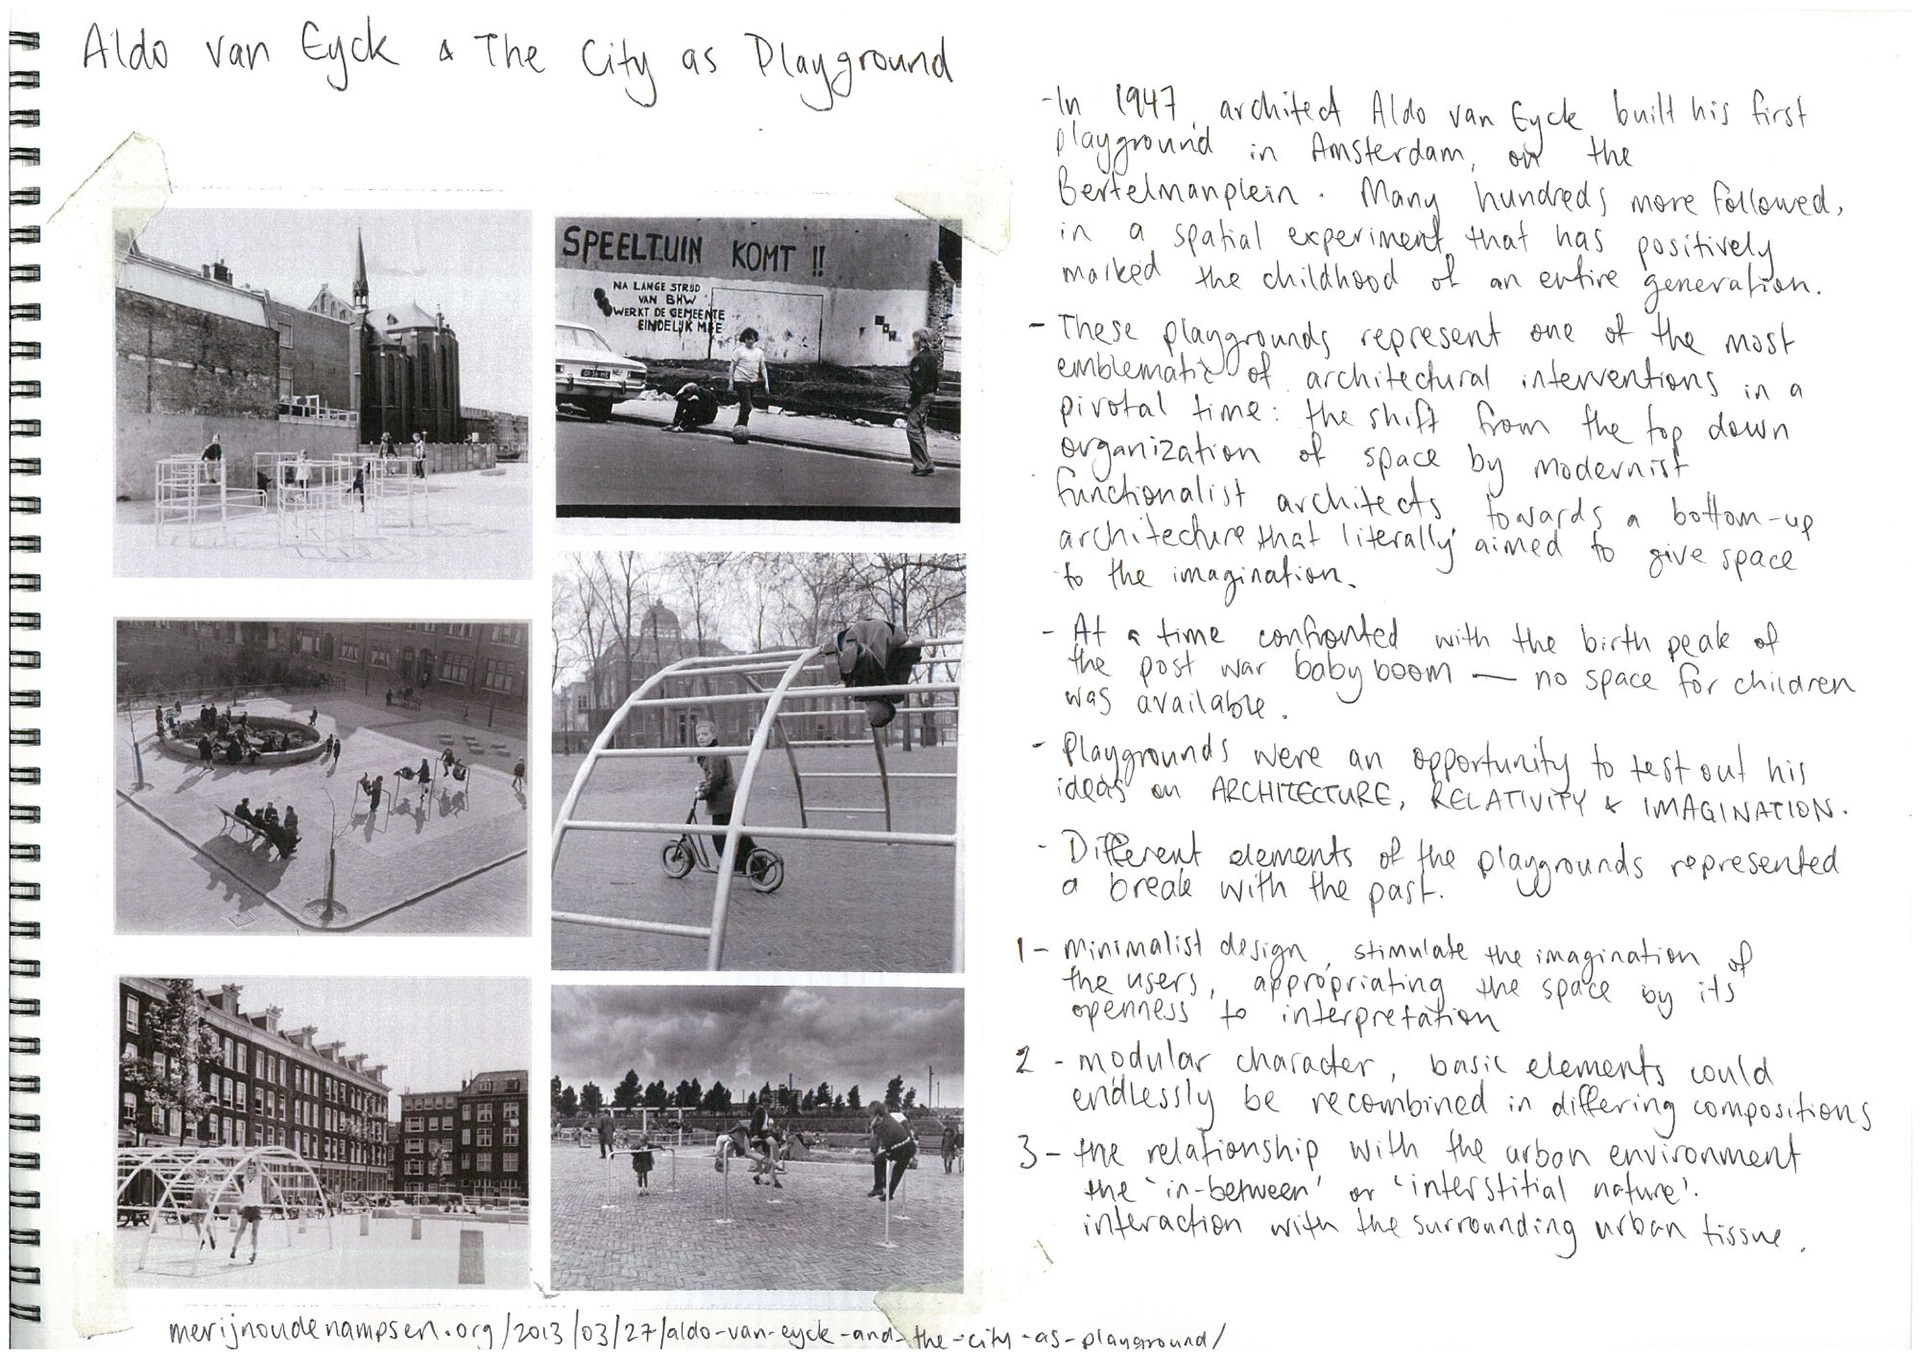 Aldo van Eyck & The City as Playground
SPEELTUIN KOMT !!
NA LANGE STRIJD
VAN BHW
WERKT DE GEMEENTE
EINDELIJK MEE
merijnoudenampsen.org/2013/03/27/aldo-van-eyck-and-the-city-as-playground/
-In 1947, architect Aldo van Eyck built his first
playground in Amsterdam, on the
Bertelmanplein. Many hundreds more followed,
in a spatial experiment that has positively
marked the childhood of an entire generation.
- These playgrounds represent one of the most
emblematic of architectural interventions in a
pivotal time: the shift from the top down
organization of space by modernist
functionalist architects towards a bottom-up
architecture that literally aimed to give space
to the imagination.
- At a time confronted with the birth peak of
the post war baby boom — no space for children
was available.
- Playgrounds were an opportunity to test out his
ideas on ARCHITECTURE, RELATIVITY & IMAGINATION.
- Different elements of the playgrounds represented
a break with the past.
1 - minimalist design, stimulate the imagination of
the users, appropriating the space by its
openness to interpretation
2 - modular character, basic elements could
endlessly be recombined in differing compositions
3 - the relationship with the urban environment
the 'in-between' or 'interstitial nature'.
interaction with the surrounding urban tissue.